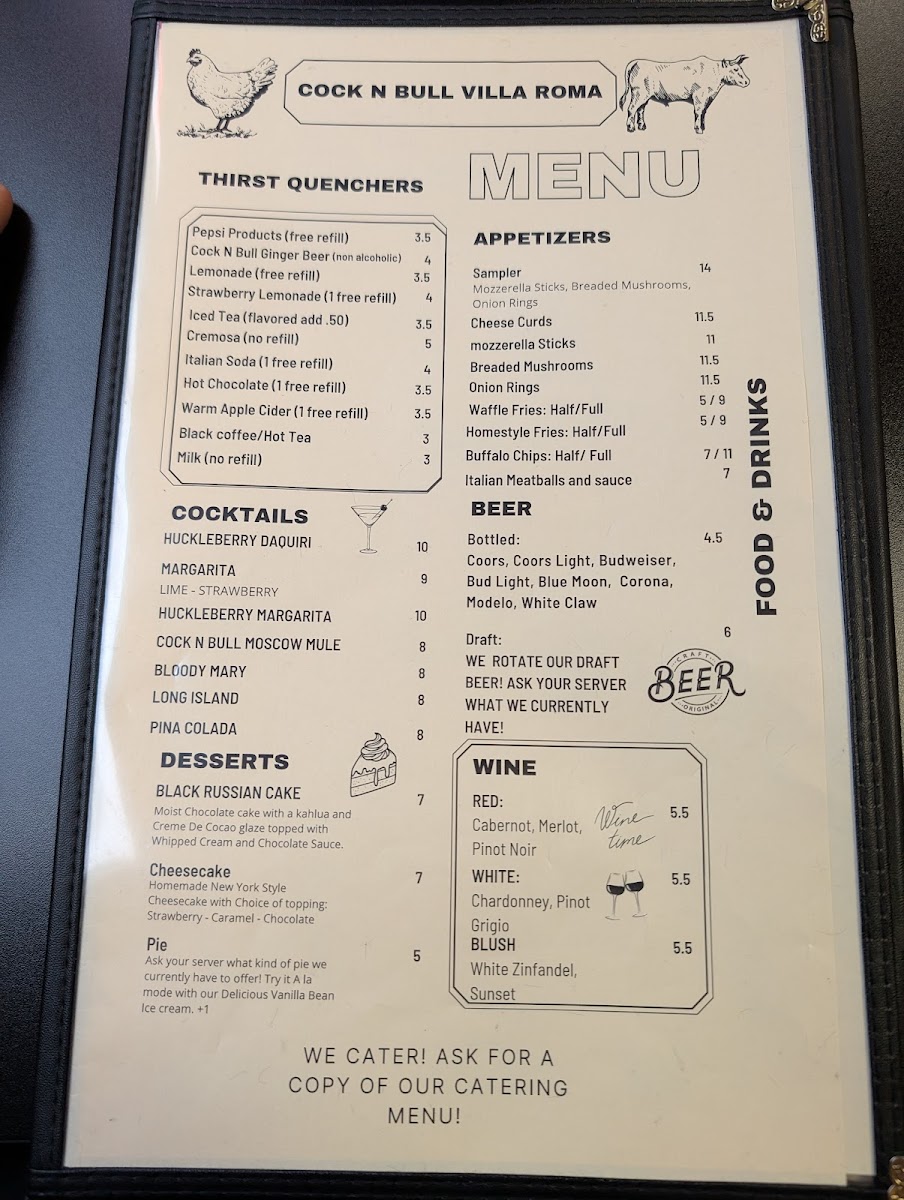 COCK N BULL VILLA ROMA
MENU
THIRST QUENCHERS
Pepsi Products (free refill) 3.5
Cock N Bull Ginger Beer (non alcoholic) 4
Lemonade (free refill) 3.5
Strawberry Lemonade (1 free refill) 4
Iced Tea (flavored add .50) 3.5
Cremosa (no refill) 5
Italian Soda (1 free refill) 4
Hot Chocolate (1 free refill) 3.5
Warm Apple Cider (1 free refill) 3.5
Black coffee/Hot Tea 3
Milk (no refill) 3
COCKTAILS
HUCKLEBERRY DAQUIRI 10
MARGARITA 9
LIME - STRAWBERRY
HUCKLEBERRY MARGARITA 10
COCK N BULL MOSCOW MULE 8
BLOODY MARY 8
LONG ISLAND 8
PINA COLADA 8
DESSERTS
BLACK RUSSIAN CAKE 7
Moist Chocolate cake with a kahlua and
Creme De Cocao glaze topped with
Whipped Cream and Chocolate Sauce.
Cheesecake 7
Homemade New York Style
Cheesecake with Choice of topping:
Strawberry - Caramel - Chocolate
Pie 5
Ask your server what kind of pie we
currently have to offer! Try it A la
mode with our Delicious Vanilla Bean
Ice cream. +1
APPETIZERS
Sampler 14
Mozzerella Sticks, Breaded Mushrooms,
Onion Rings
Cheese Curds 11.5
mozzerella Sticks 11
Breaded Mushrooms 11.5
Onion Rings 11.5
Waffle Fries: Half/Full 5 / 9
Homestyle Fries: Half/Full 5 / 9
Buffalo Chips: Half/ Full 7 / 11
Italian Meatballs and sauce 7
BEER
Bottled: 4.5
Coors, Coors Light, Budweiser,
Bud Light, Blue Moon, Corona,
Modelo, White Claw
Draft: 6
WE ROTATE OUR DRAFT
BEER! ASK YOUR SERVER
WHAT WE CURRENTLY
HAVE!
CRAFT
BEER
ORIGINAL
WINE
RED: 5.5
Cabernot, Merlot,
Pinot Noir
Wine
time
WHITE: 5.5
Chardonney, Pinot
Grigio
BLUSH 5.5
White Zinfandel,
Sunset
FOOD & DRINKS
WE CATER! ASK FOR A
COPY OF OUR CATERING
MENU!